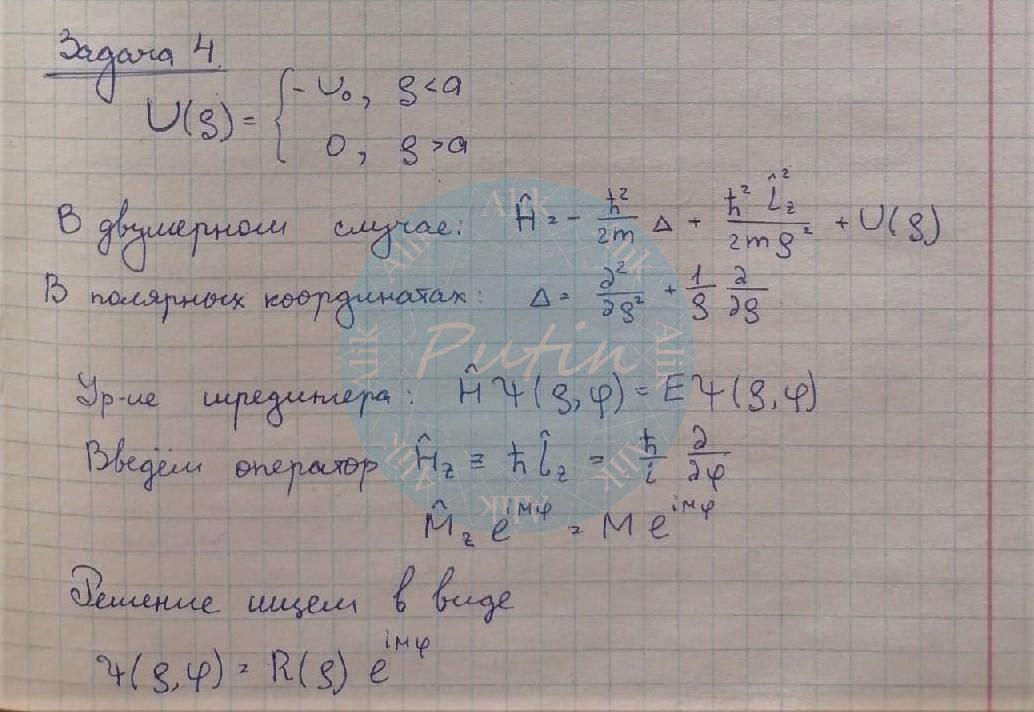 Задача 4.
U(ρ) = { -U₀, ρ<a
0, ρ>a
В двумерном случае: Ĥ = - ħ²/2m Δ + ħ² l̂_z²/2mρ² + U(ρ)
В полярных координатах: Δ = ∂²/∂ρ² + 1/ρ ∂/∂ρ
Ур-ие шредингера: Ĥ Ψ(ρ,φ) = E Ψ(ρ,φ)
Введём оператор M̂_z ≡ ħ l̂_z = ħ/i ∂/∂φ
M̂_z e^{iмφ} = M e^{iмφ}
Решение ищем в виде
Ψ(ρ,φ) = R(ρ) e^{iмφ}
Alik
Putin